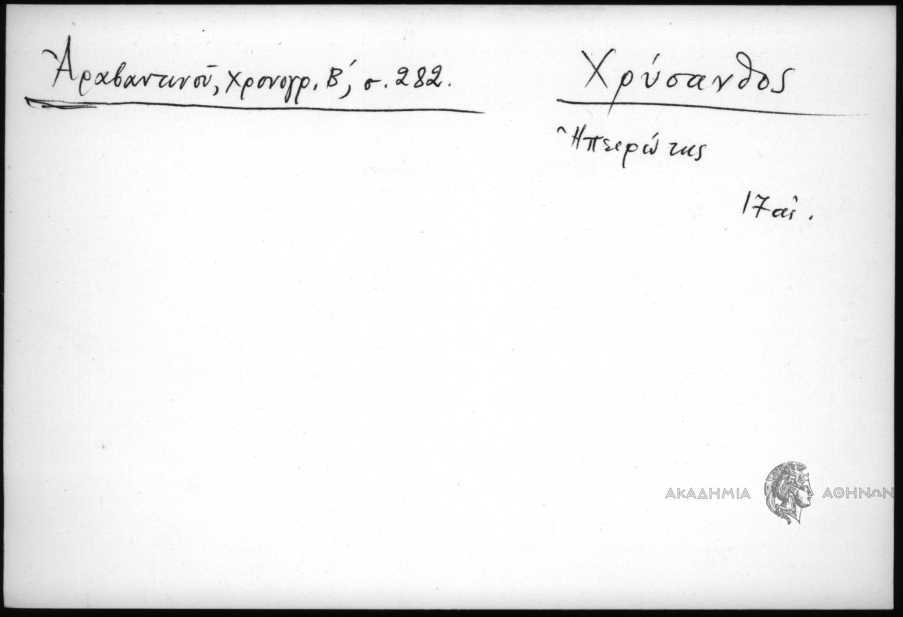 Ἀραβαντινοῦ, Χρονογρ. Β΄, σ. 282.
Χρύσανθος
Ἠπειρώτης
17 αἰ.
ΑΚΑΔΗΜΙΑ ΑΘΗΝΩΝ